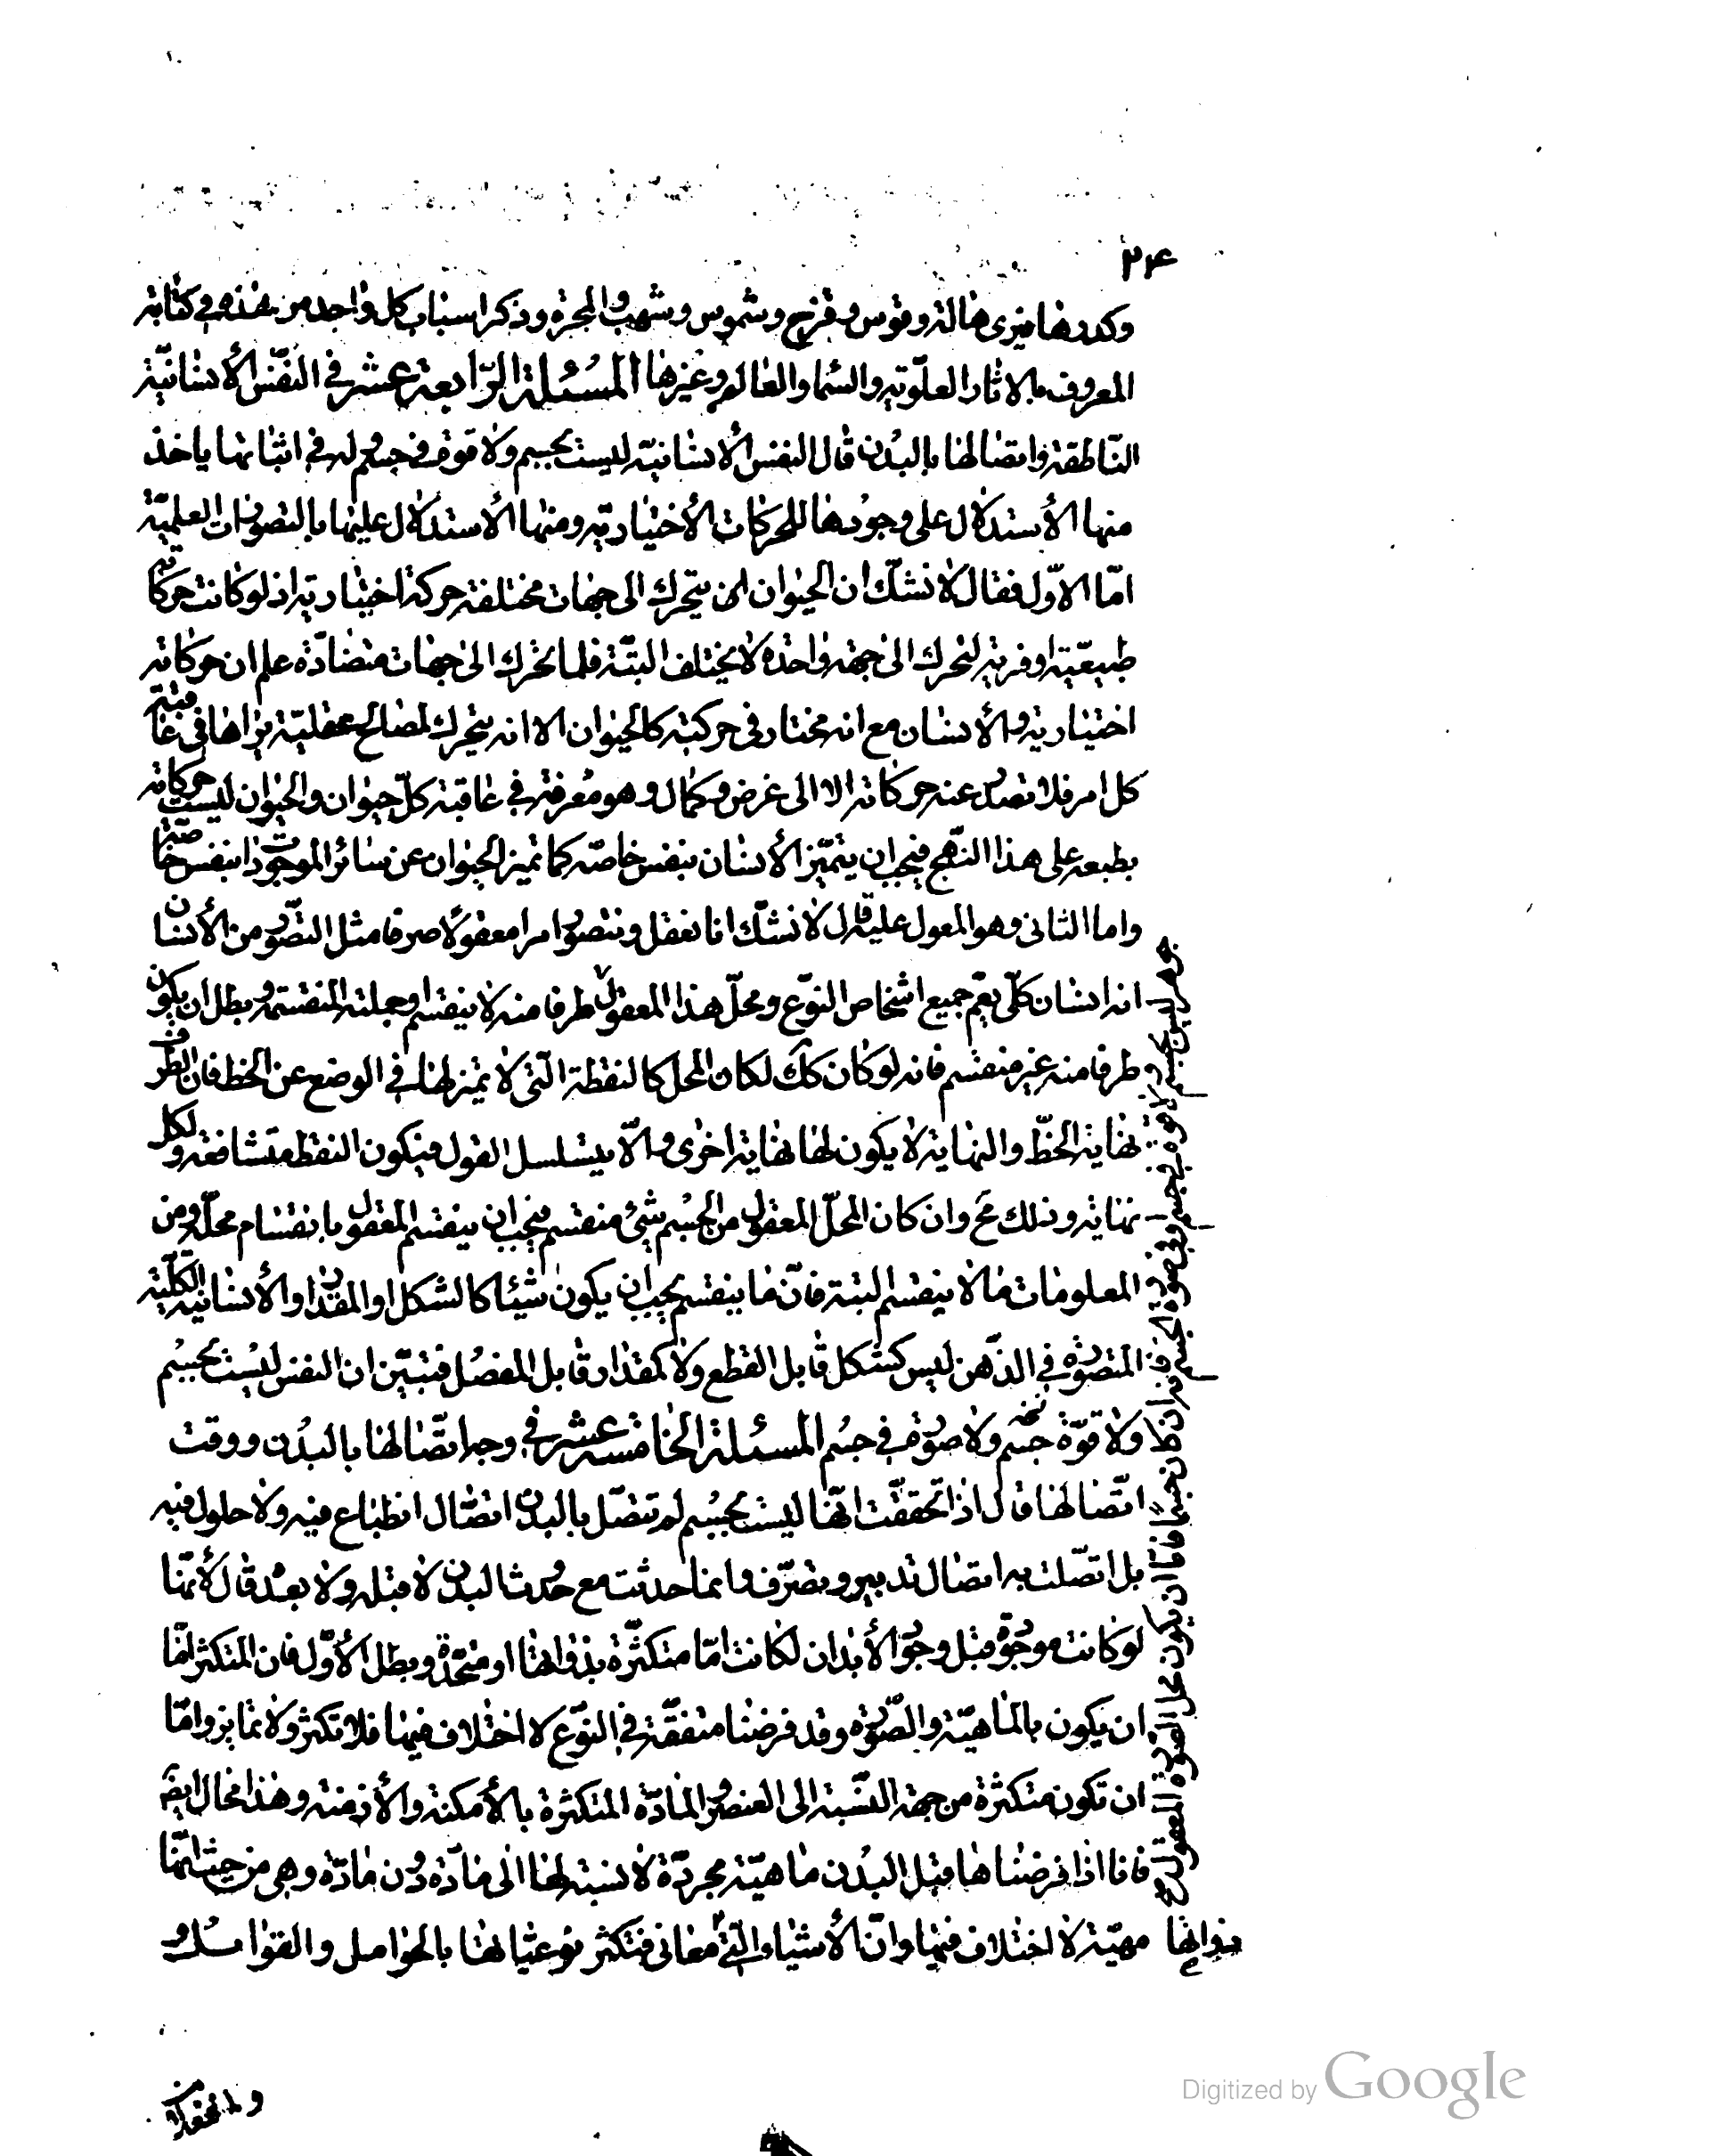 ٢٤
وكدرها فيرى هالة وقوس وقزح وشموس وشهب والمجرة وذكر اسباب كل واحد من هذه في كتابه
المعروف بالاثار العلوية والسماء والعالم وغيرها المسئلة الرابعة عشر في النفس الأنسانية
الناطقة واتصالها بالبدن قال النفس الأنسانية ليست بجسم ولا قوة في جسم وله في اثباتها ياخذ
منها الأستدلال على وجودها للحركات الأختيارية ومنها الأستدلال عليها بالتصورات العلمية
امّا الاوّل فقال لا نشك ان الحيوان يتحرك الى جهات مختلفة حركة اختيارية اذ لو كانت حركاته
طبيعية او قسرية لتحرك الى جهة واحدة لا يختلف البتة فلما تحرك الى جهات متضادّة علم ان حركاته
اختيارية والأنسان مع انه مختار في حركته كالحيوان الا انه يتحرك لمصالح عقلية يراها في عاقبة
كل امر فلا تصدر عنه حركاته الا الى غرض وكمال وهو معرفة في عاقبة كل حيوان والحيوان ليست حركاته
بطبعه على هذا النهج فيجب ان يتميّز الأنسان بنفس خاصّة كما تميز الحيوان عن سائر الموجودات بنفس خاصّة
واما الثاني وهو المعول عليه قال لا نشك انا نعقل ونتصور امرا معقولا صرفا مثل التصور من الأنسان
انه انسان كلّي يعم جميع اشخاص النوع ومحل هذا المعقول جوهر ليس بجسم ولا قوة في جسم او في صورة لجسم فانه ان كان جسما فاما ان يكون محل الصورة المعقولة
طرفا منه لا ينقسم او جملته المنقسمة وبطل ان يكون
طرفا منه غير منقسم فانه لو كان كك لكان المحل كالنقطة التي لا تميز لها في الوضع عن الخط فان الطرف
نهاية الخطّ والنهاية لا يكون لها نهاية اخرى والّا يتسلسل القول فيكون النقط متشافعة ولكل
نهاية وذلك مح وان كان المحلّ المعقول من الجسم شئ منقسم فيجب ان ينقسم المعقول بانقسام محلّه ومن
المعلومات ما لا ينقسم البتة فانّ ما ينقسم يجب ان يكون شيئا كالشكل او المقدار والأنسانية الكلّية
المتصورة في الذّهن ليس كشكل قابل القطع ولا كمقدار قابل الفصل فتبيّن ان النفس ليست بجسم
ولا قوّة جسم ولا صورة في جسم المسئلة الخامسة عشر في وجه اتّصالها بالبدن ووقت
اتّصالها قال اذا تحققت انّها ليست بجسم لم تتصل بالبدن اتصال انطباع فيه ولا حلول فيه
بل اتصلت به اتصال تدبير وتصرّف وانما حدثت مع حدث البدن لا قبله ولا بعد قال لأنّها
لو كانت موجودة قبل وجود الأبدان لكانت امّا متكثّرة بذواتها او متحّدة وبطل الأوّل فان المتكثر امّا
ان يكون بالماهيّة والصّورة وقد فرضنا متفقة في النوع لا اختلاف فيها فلا تكثر ولا تمايز وامّا
ان تكون متكثرة من جهة النّسبة الى العنصر والمادّة المتكثرة بالأمكنة والأزمنة وهذا محال ايض
فانا اذا فرضناها قبل البدن ماهيّة مجردّة لا نسبة لها الى مادّة دون مادّة وهي من حيث انّها
مهيّة لا اختلاف فيها وانّ الأشياء التي ذواتها معاني فتكثر نوعيّاتها بالحوامل والقوابل و
Digitized by Google